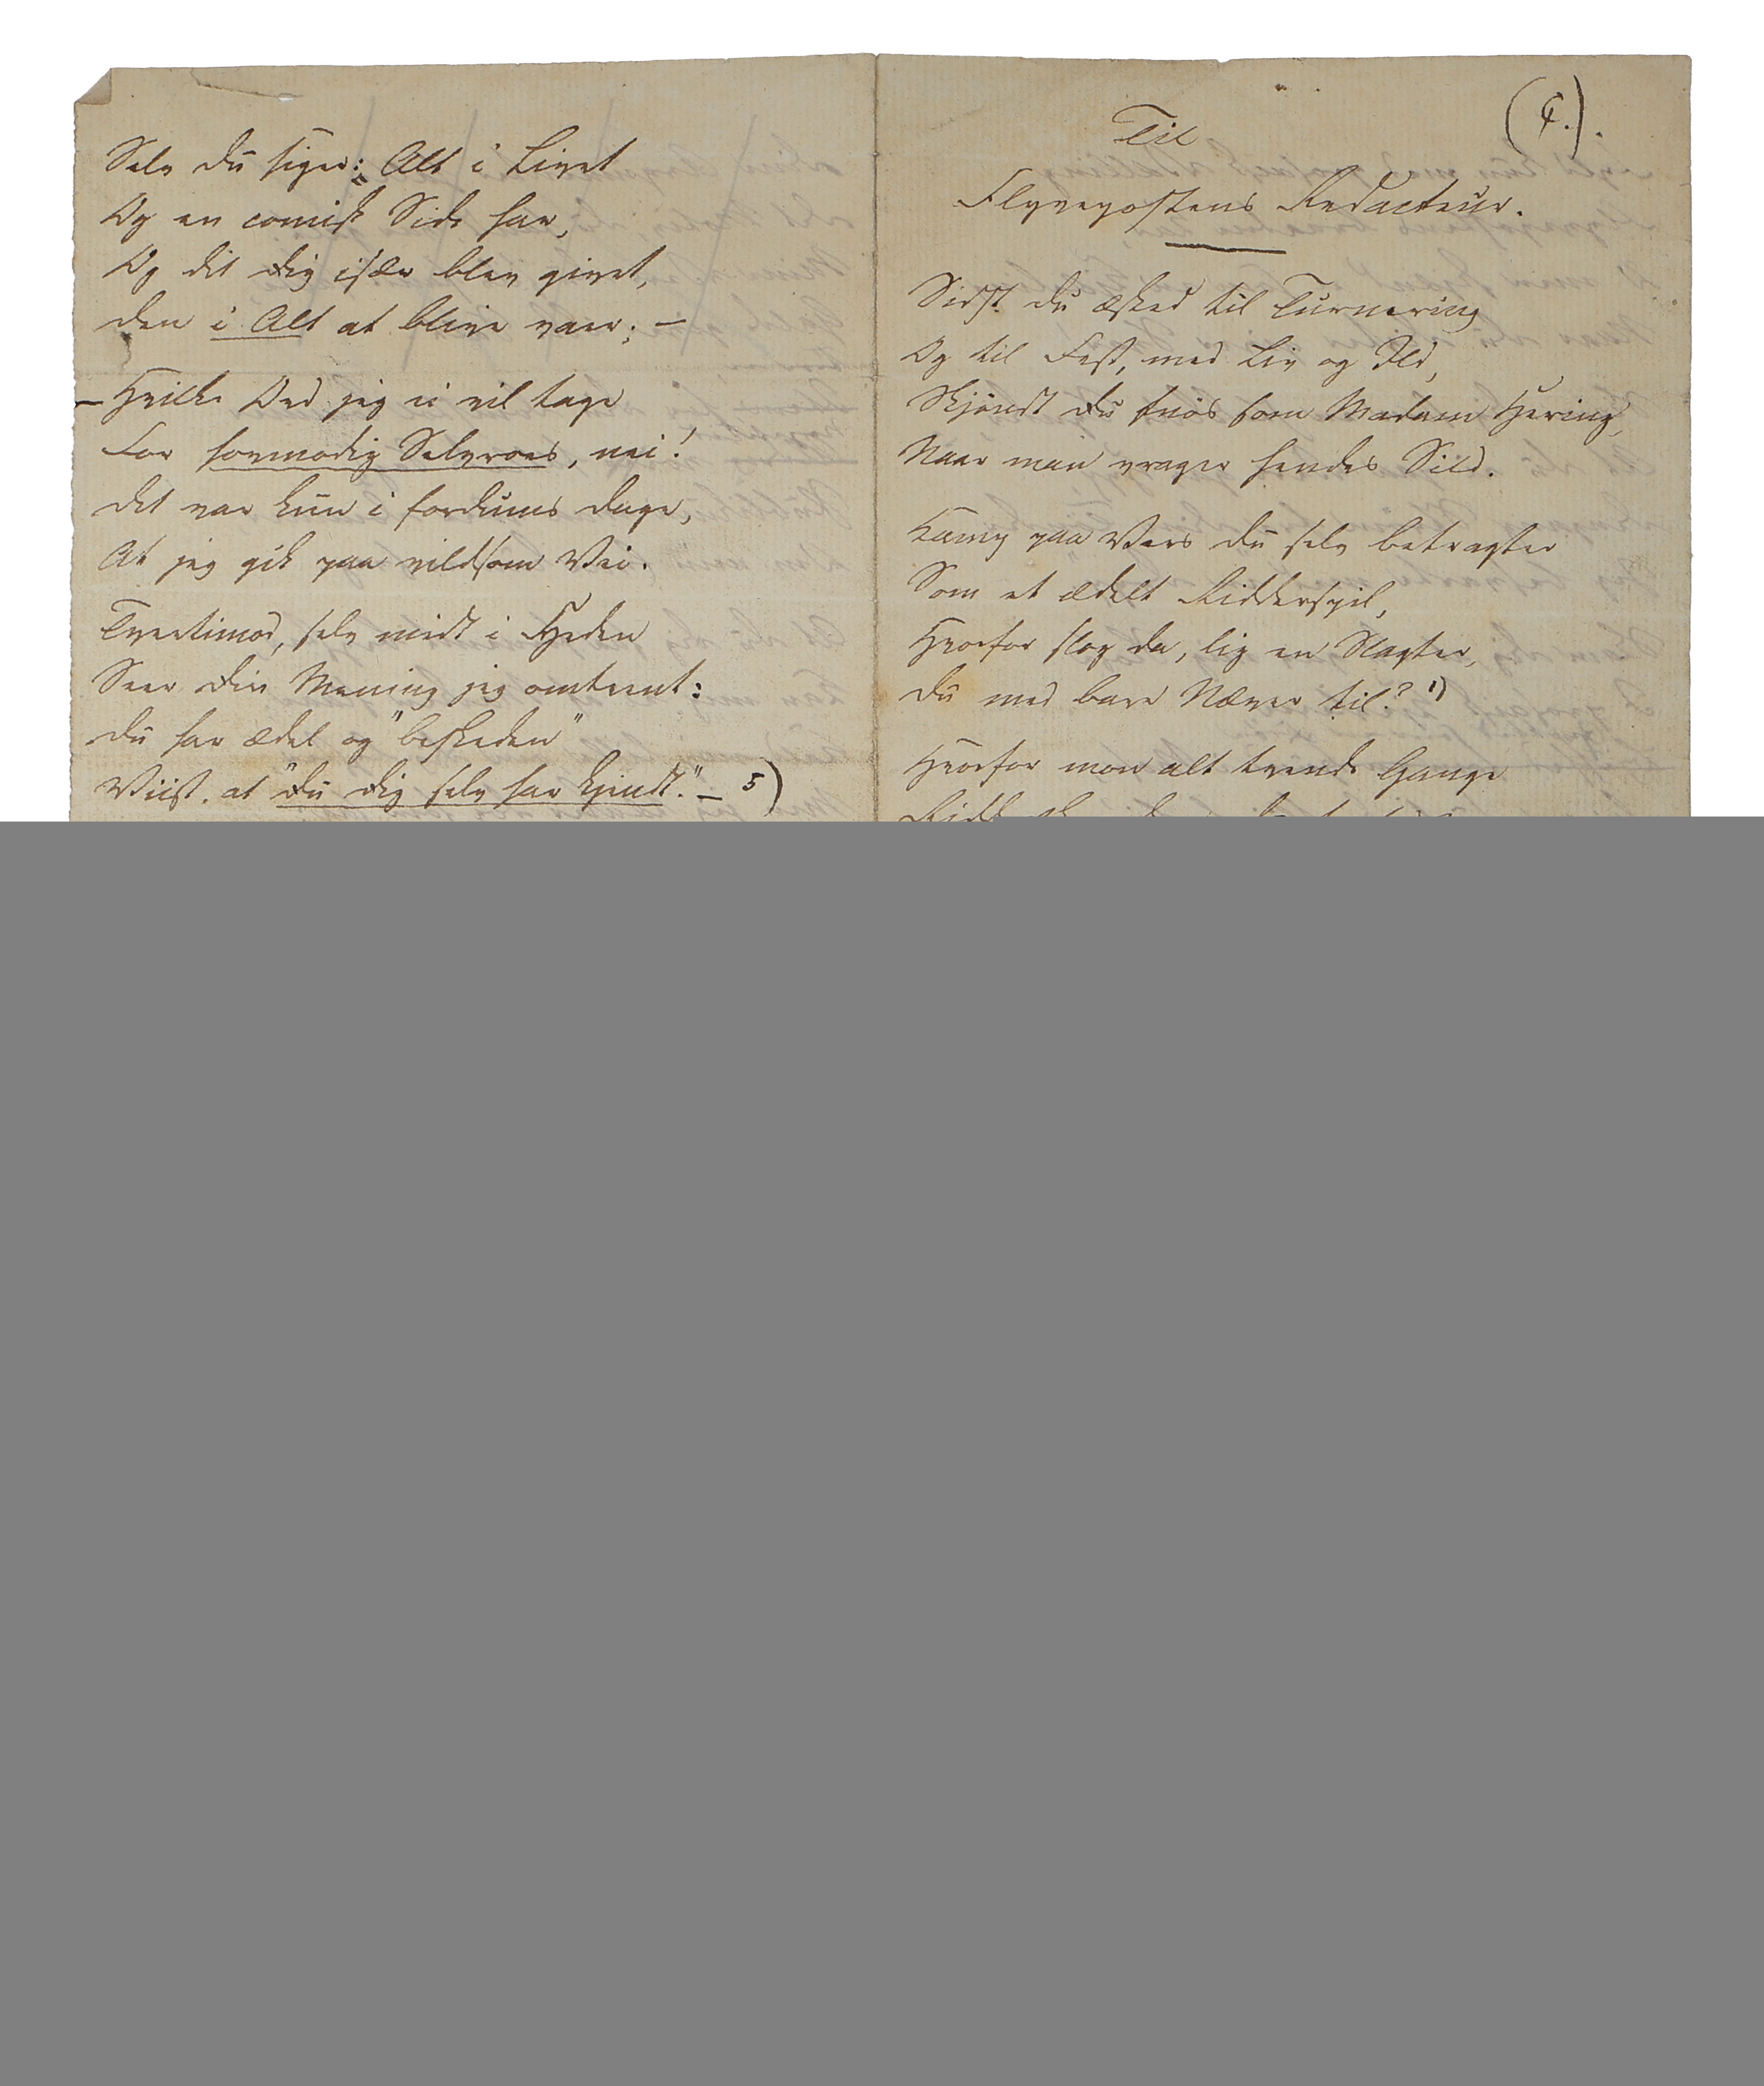 Selv Du siger: "Alt i Livet
Og en comisk Side har,
Og det Dig især blev givet,
Den i Alt at blive vaer; —
— Hvilke Ord jeg ei vil tage
For hovmodig Selvroes, nei!
Det var kun i fordums Dage,
At jeg gik paa vildsom Vei.
Tvertimod, selv midt i Heden
Seer Din Mening jeg omtrent:
Du har ædel og "beskeden"
Viist, at "Du Dig selv har kjendt." — 5)
(4.).
Til
Flyvepostens Redacteur.
Sidst Du æsked til Turnering
Og til Fest, med Liv og Ild,
Skjöndt Du fnös som Madam Hering,
Naar man vrager hendes Sild.
Kamp paa Vers Du selv betragter
Som et ædelt Ridderspil,
Hvorfor slog da, lig en Slagter,
Du med bare Næver til? 1)
Hvorfor mon alt trende Gange